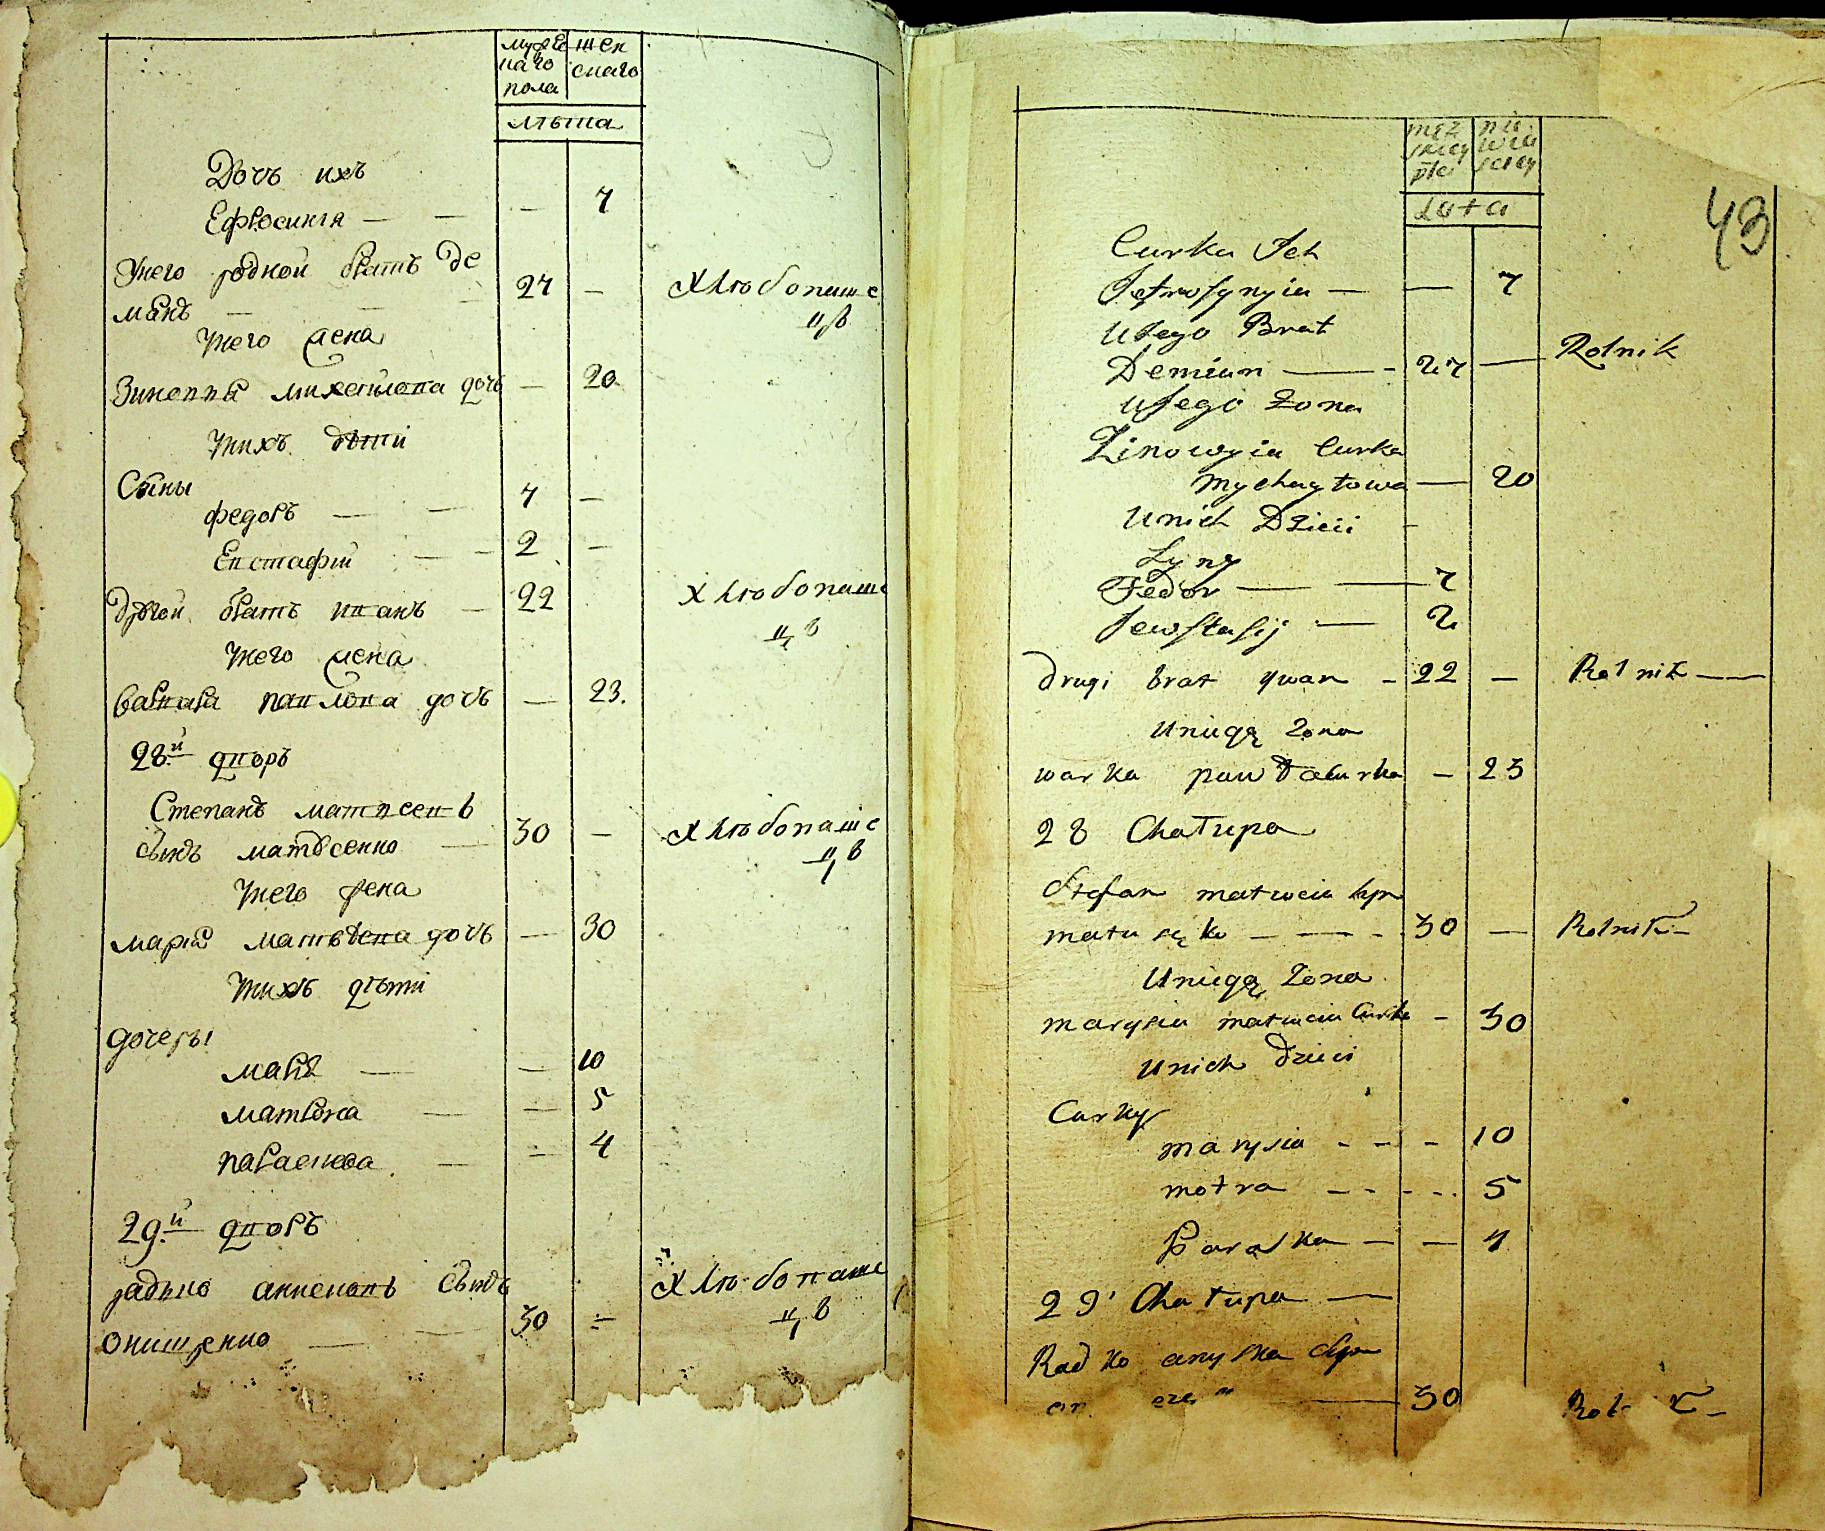 мужес
наго
пола
женс
скаго
лѣта
Дочь ихъ
Ефросинія — — — 7
Унего родной братъ Де
манъ — — 27 — Хлѣбопаше
цъ
Унего жена
Зиновия михайлова дочь — 20.
Унихъ дѣти
Сыны
федоръ — — 7 —
Евстафій — — 2 —
Другой братъ иванъ — 22 Хлѣбопаше
цъ
Унего жена
варвара павлова дочь — 23.
28.й дворъ
Степанъ матвеевъ
сынъ матвѣенко — 30 — Хлѣбопаше
цъ
Унего жена
марія матвѣева дочь — 30
Унихъ дѣти
дочеры
марія — — 10
матрона — — 5
параскева — — 4
29.й дворъ
радько сынъ
онищенко — — 30 = Хлѣбопаше
цъ
męz
skiey
płci
nie
wie
sciey
Lata
43
Curka Ich
Jefrosynyia — — 7
Ujego Brat
Demian — - 27 — Rolnik
Ujego Zona
Zinowyia Curka
Mychayłowa — 20
Unich Dzieci -
Syny
Fedor — — 7
Jewstafij — 2
drugi brat ywan - 22 — Rolnik —
Uniegą Zona
warka pawłacurka - 23
28 Chałupa
Stefan matweia syn
matusęko — — - 30 — Rolnik -
Uniegą Zona
marysia matweia Curka - 30
Unich dzieci
Curky
marysia - - - 10
motra - - - - 5
Paraska — — 4
29' Chałupa —
Radko anyska Syn
— 30